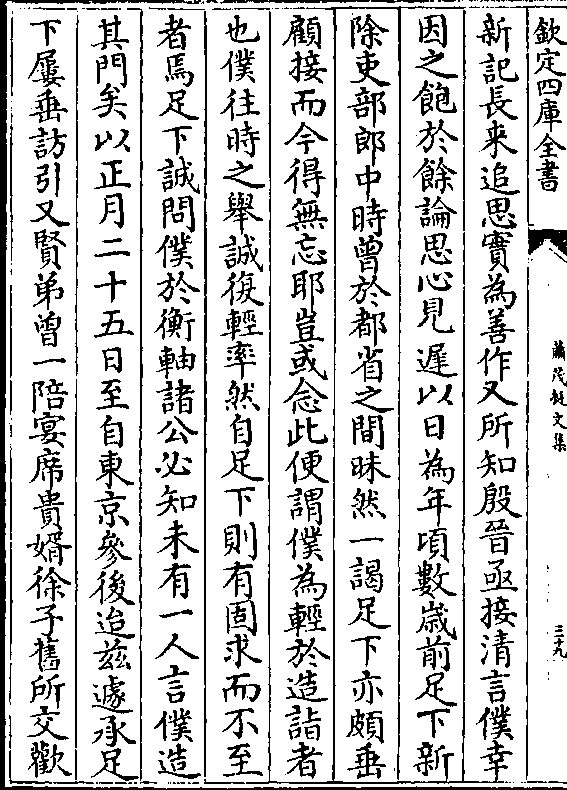 欽定四庫全書
蕭茂挺文集
三十九
新記長来追思實為善作又所知殷晉亟接清言僕幸
因之飽於餘論思心見遲以日為年頃數歲前足下新
除吏部郎中時曽於都省之間昧然一謁足下亦頗垂
顧接而今得無忘耶豈或念此便謂僕為輕於造詣者
也僕往時之舉誠復輕率然自足下則有固求而不至
者焉足下誠問僕於衡軸諸公必知未有一人言僕造
其門矣以正月二十五日至自東京參後迨兹遽承足
下屢垂訪引又賢弟曽一陪宴席貴婿徐子舊所交歡